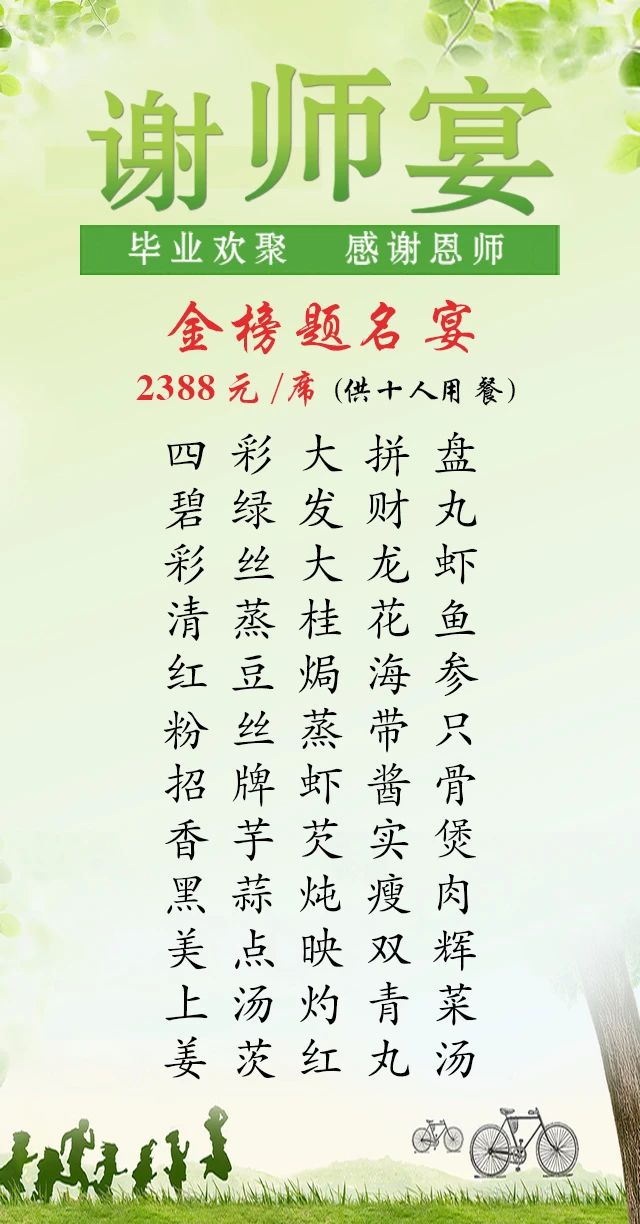 谢师宴
毕业欢聚 感谢恩师
金榜题名宴
2388元/席(供十人用餐)
四彩大拼盘
碧绿发财丸
彩丝大龙虾
清蒸桂花鱼
红豆焗海参
粉丝蒸带只
招牌虾酱骨
香芋芡实煲
黑蒜炖瘦肉
美点映双辉
上汤灼青菜
姜茨红丸汤